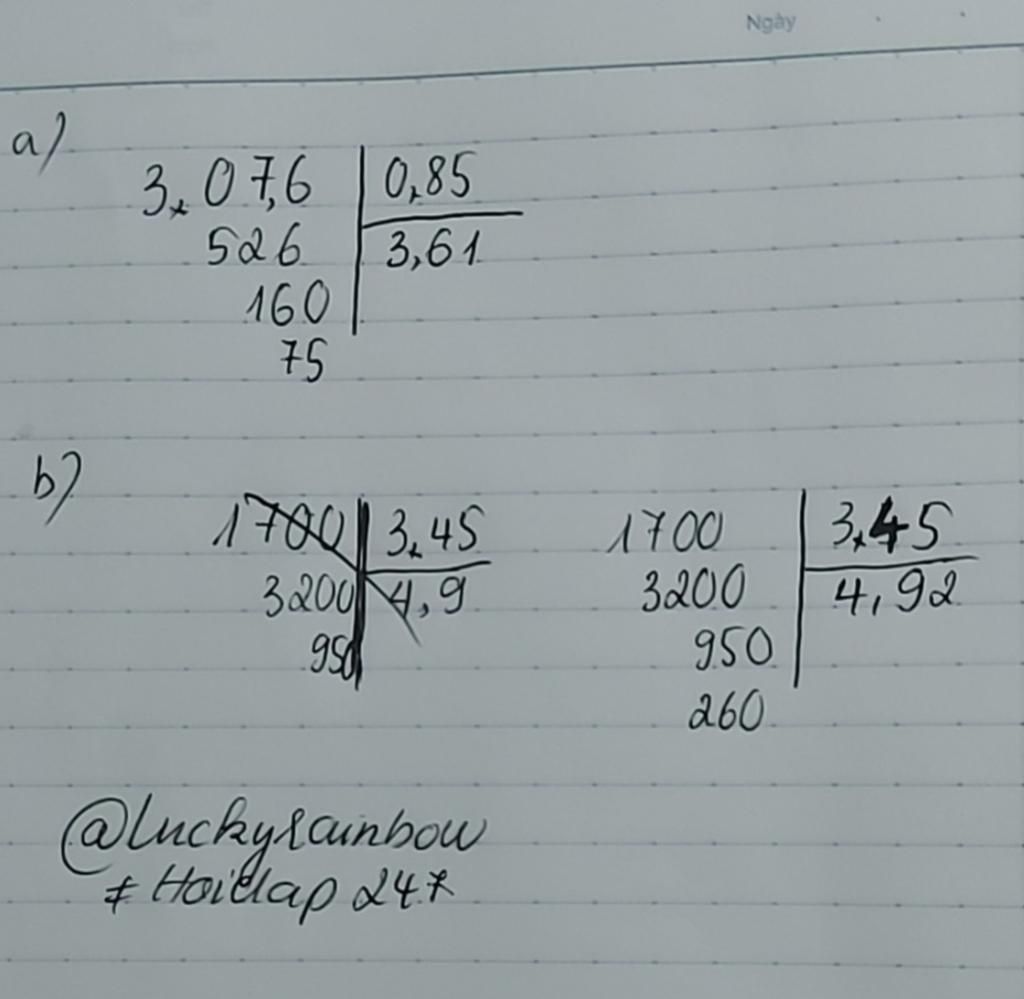 Ngày
a)
3,07,6 0,85
526 3,61
160
75
b)
1700 3,45 1700 3,45
3200 4,9 3200 4,92
950 950
260
@luckyrainbow
# Hoidap 247